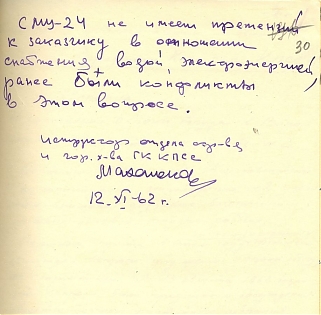 СМУ-24 не имеет претензий
30
к заказчику в отношении
снабжения водой, электроэнергией,
ранее были конфликты
в этом вопросе.
Инструктор отдела стр-ва
и гор. х-ва ГК КПСС
12. XI-62 г.